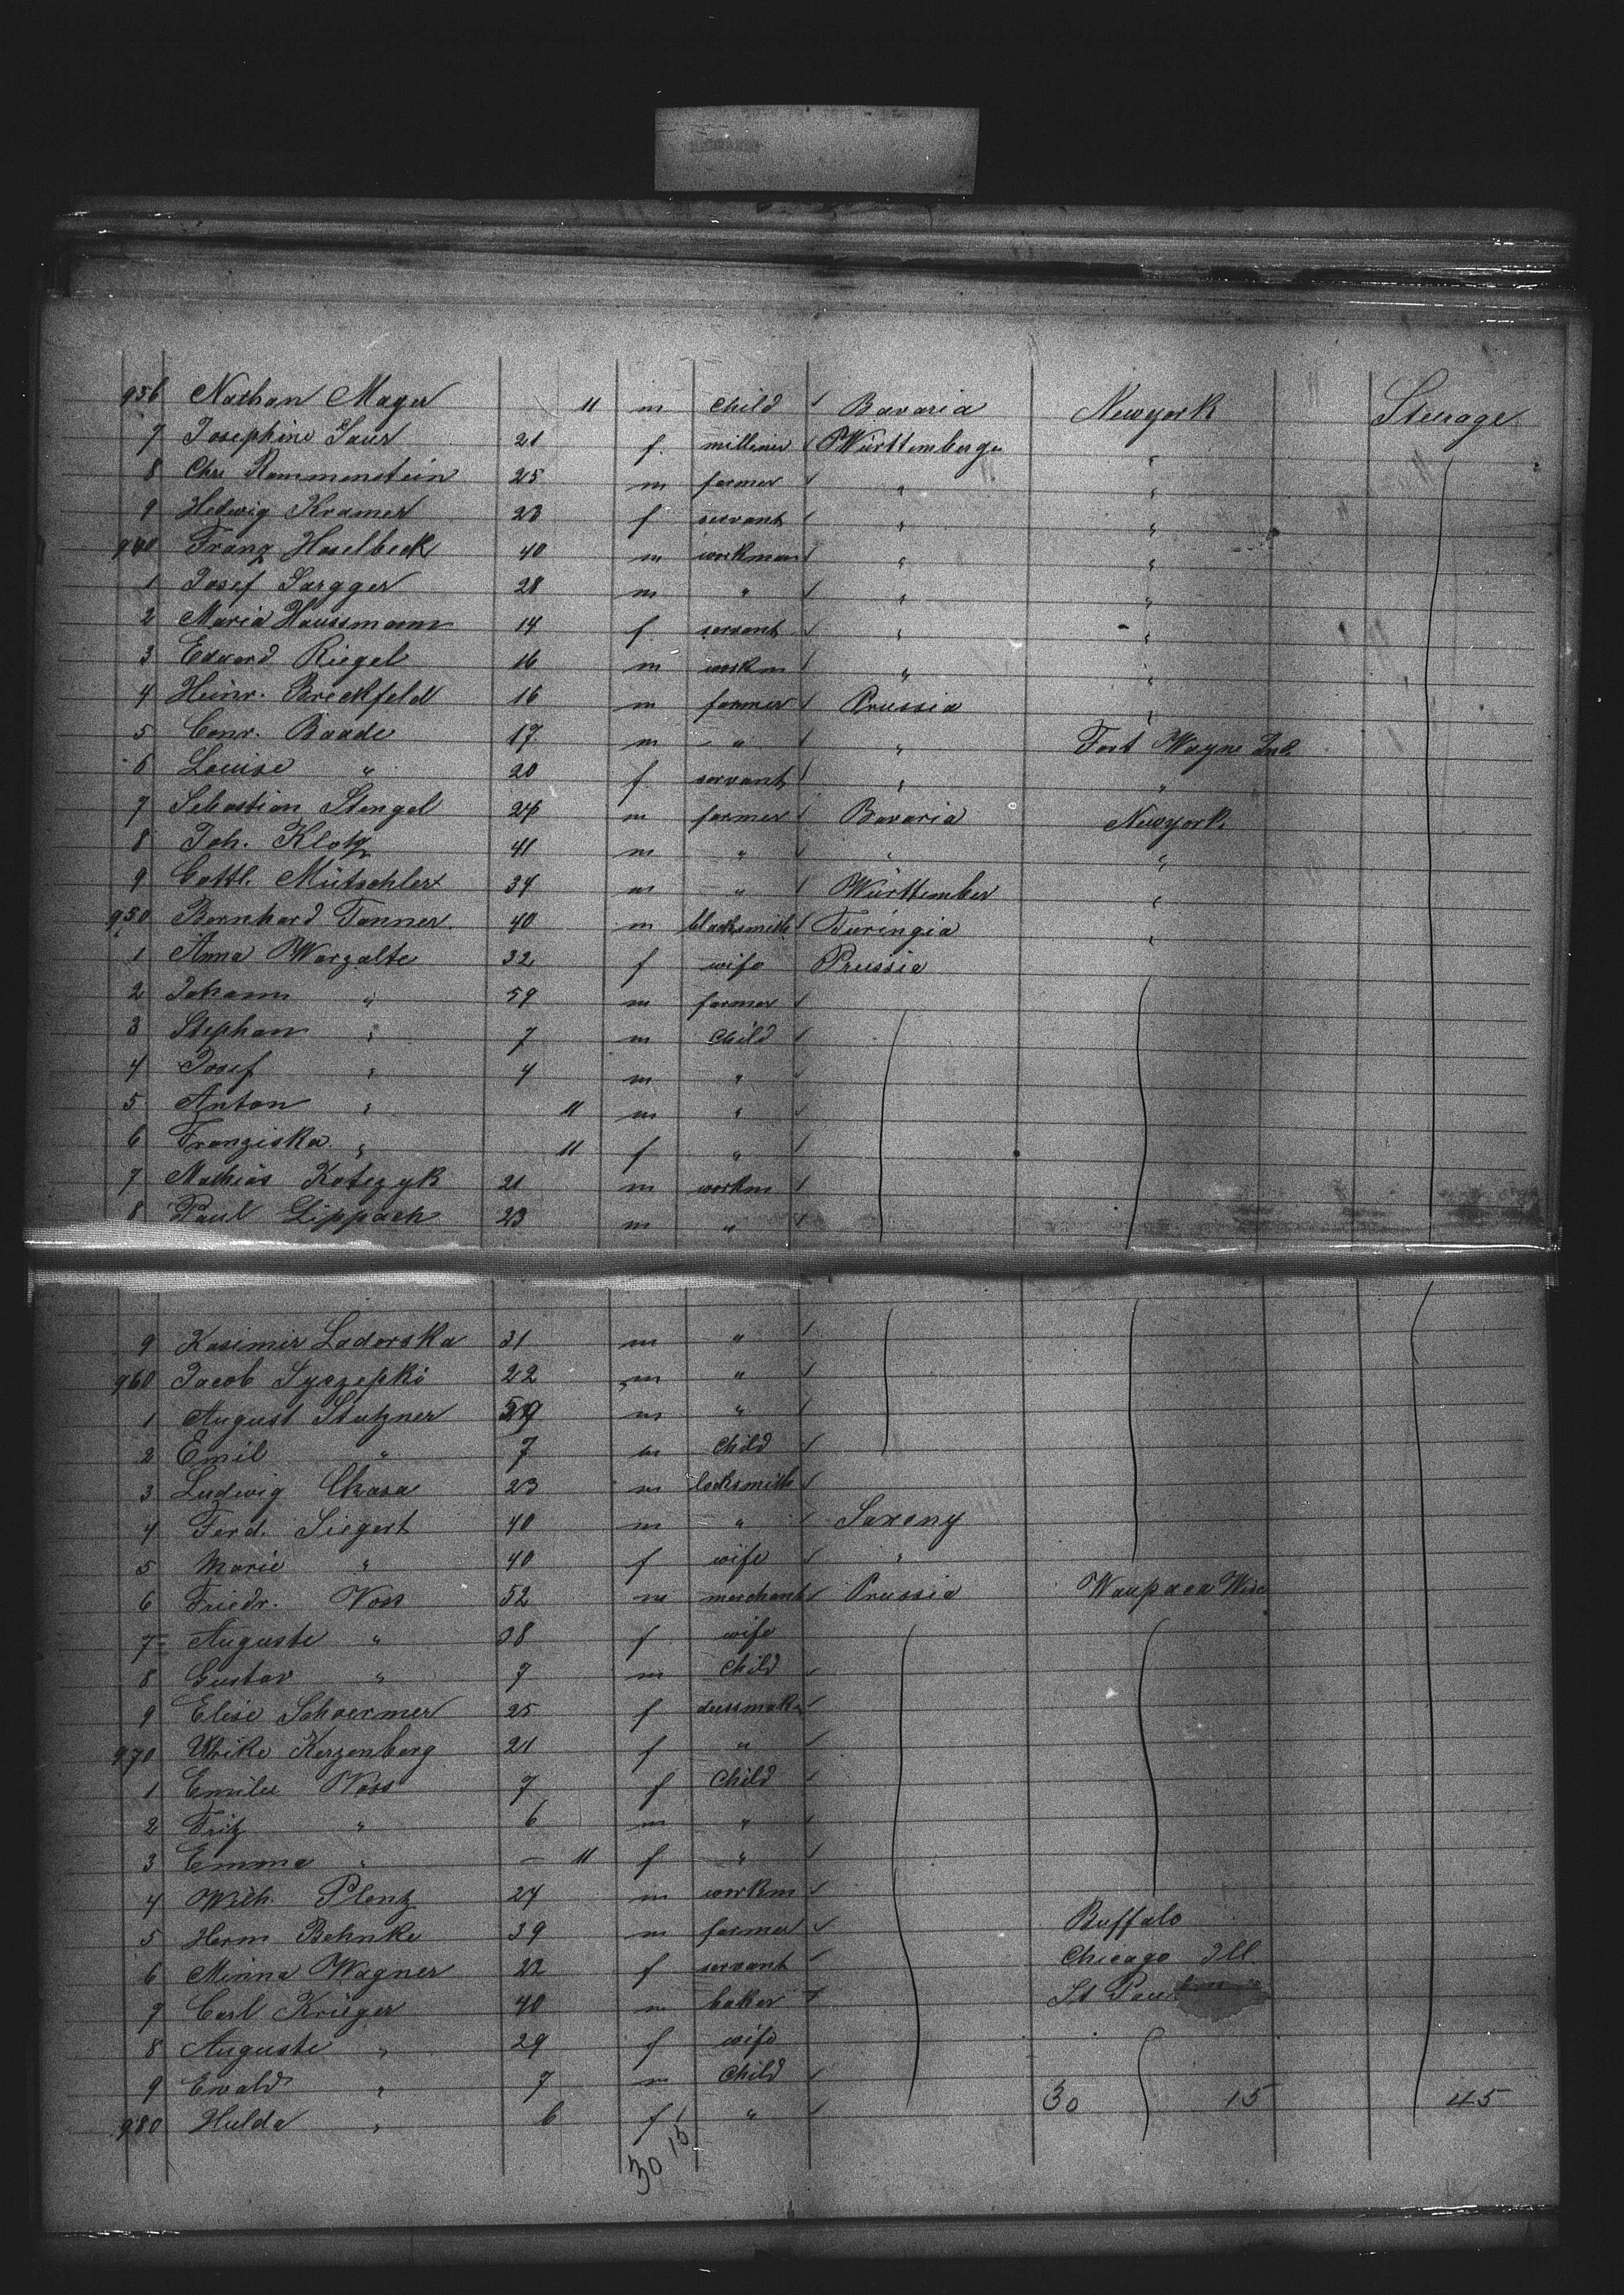 936 Nathan Mayer 11 m child ✓ Bavaria Newyork Steerage
7 Josephine Saur 21 f. millener ✓ Württemberge "
8 Chr. Rammenstein 25 m farmer ✓ " "
9 Hedwig Kramer 23 f servant ✓ " "
940 Franz Haselbeck 40 m workman ✓ " "
1 Josef Sargger 28 m " ✓ " "
2 Maria Haussmann 14 f. servant ✓ " "
3 Edward Riegel 16 m workm ✓ " "
4 Heinr. Breckfeld 16 m farmer ✓ Prussia "
5 Conr. Baade 17 m " ✓ " Fort Wayne Ind.
6 Louise " 20 f servant ✓ " "
7 Sebastian Stengel 24 m farmer ✓ Bavaria Newyork
8 Joh. Klotz 41 m " ✓ " "
9 Gottl. Mütschler 34 m " ✓ Württember "
950 Bernhard Tanner 40 m blacksmith ✓ Turingia "
1 Anna Warzalte 32 f wife Prussia
2 Johann " 59 m farmer ✓
3 Stephan " 7 m Child ✓
4 Josef " 4 m " ✓
5 Anton " 11 m " ✓
6 Franziska " 11 f " ✓
7 Mathias Kotczyk 21 m workm ✓
8 Paul Lippach 23 m " ✓
9 Kasimir Ladorska 31 m " ✓
960 Jacob Syszepki 22 m " ✓
1 August Stutzner m " ✓
2 Emil " 7 m Child ✓
3 Ludwig Chasa 23 m locksmith ✓
4 Ferd. Siegert 40 m " ✓ Saxony
5 Marie " 40 f wife ✓ "
6 Friedr. Voss 52 m merchant ✓ Prussia Waupaca Wisc
7 Auguste " 38 f wife
8 Gustav " 7 m Child ✓
9 Elise Schoermer 25 f dressmaker ✓
970 Ulrike Kerzenberg 21 f " ✓
1 Emilie Voss 7 f Child ✓
2 Fritz " 6 m " ✓
3 Emma " – 11 f " ✓
4 Wilh. Plenz 24 m workm ✓
5 Herm Behnke 39 m farmer ✓ Buffalo
6 Minna Wagner 22 f servant ✓ Chicago Ill.
7 Carl Krüger 40 m baker ✓ St Paul
8 Auguste " 29 f wife
9 Ewald " 7 m Child ✓
980 Hulda " 6 f " ✓ 30 15 45
30 15